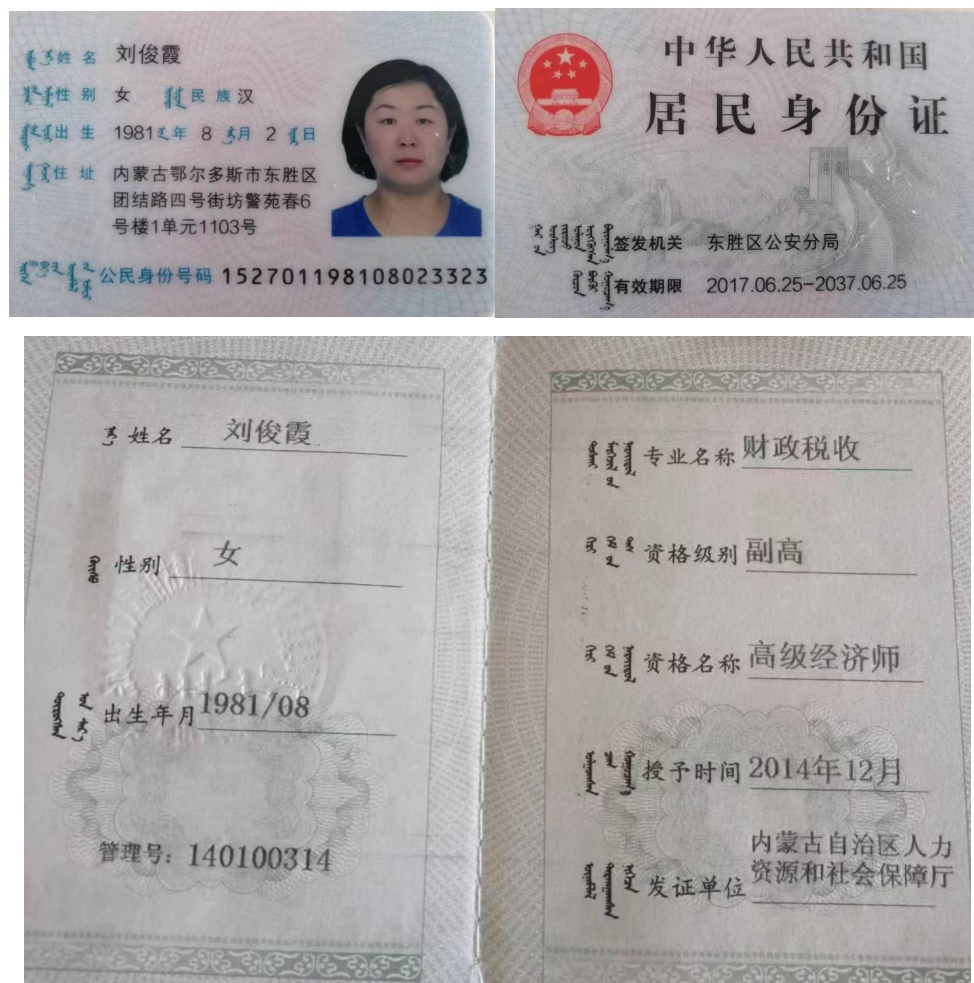 姓名 刘俊霞
性别 女 民族 汉
出生 1981年 8月 2日
住址 内蒙古鄂尔多斯市东胜区
团结路四号街坊警苑春6
号楼1单元1103号
公民身份号码 152701198108023323
中华人民共和国
居民身份证
签发机关 东胜区公安分局
有效期限 2017.06.25-2037.06.25
姓名 刘俊霞
性别 女
出生年月 1981/08
管理号：140100314
专业名称 财政税收
资格级别 副高
资格名称 高级经济师
授予时间 2014年12月
发证单位 内蒙古自治区人力
资源和社会保障厅